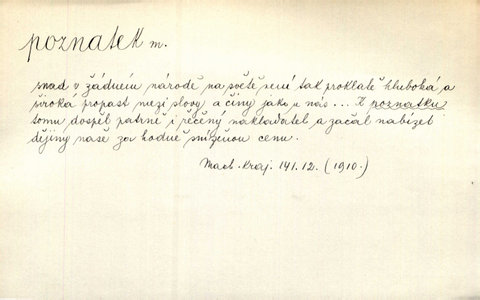 poznatek m.
snad v žádném národě na světě není tak proklatě hluboká a
široká propast mezi slovy a činy jako u nás... K poznatku
tomu dospěl patrně i řečený nakladatel a začal nabízet
dějiny naše za hodně sníženou cenu.
Mach. Kraj. 141.12. (1910.)